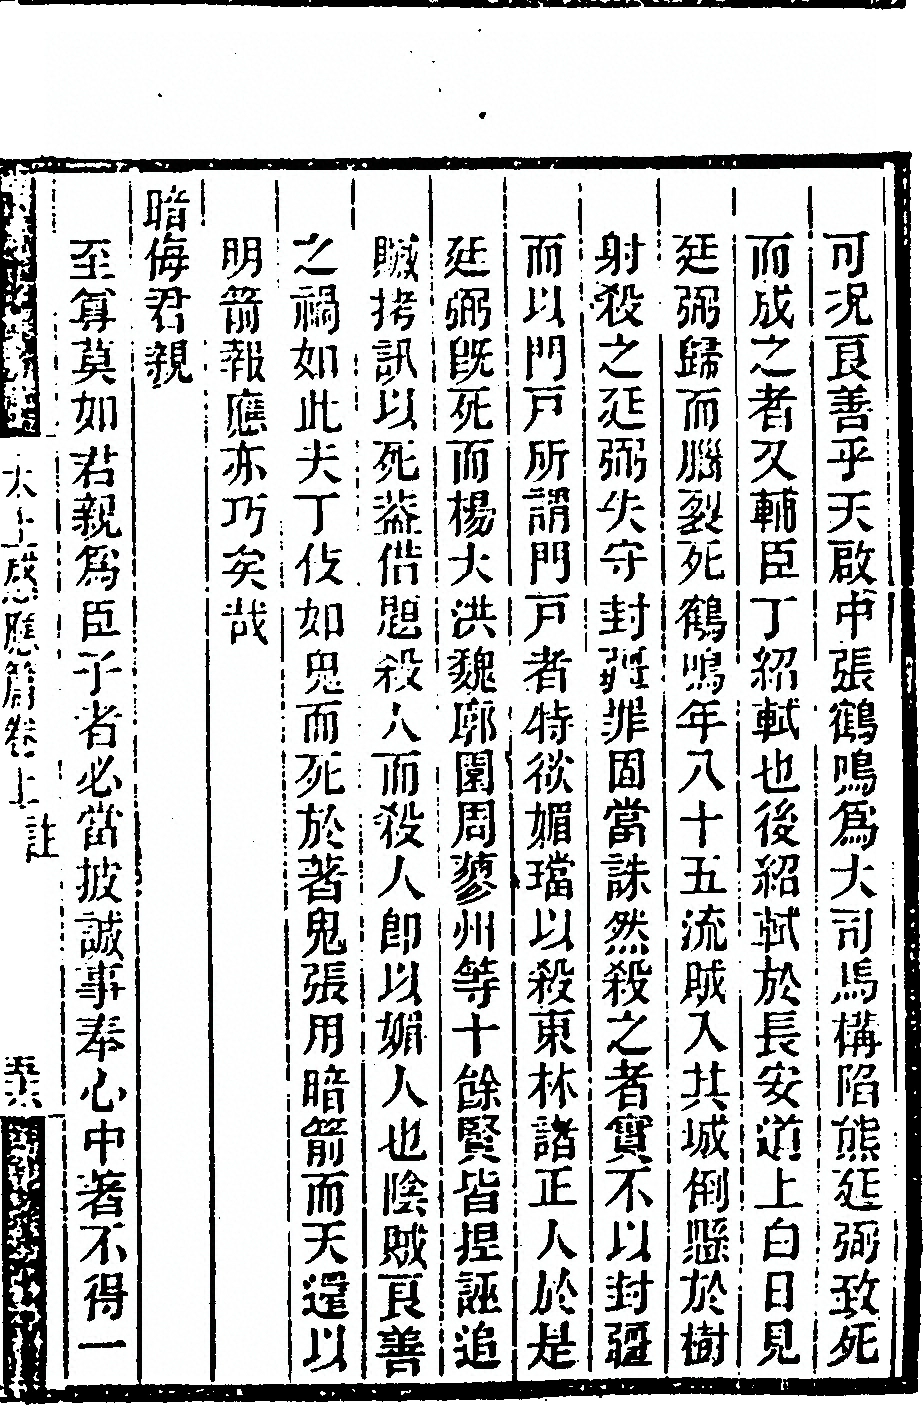 可况良善乎天啟中張鶴鳴爲大司馬構陷熊廷弼致死
而成之者久輔臣丁紹軾也後紹軾於長安道上白日見
廷弼歸而腦裂死鶴鳴年八十五流賊入其城倒懸於樹
射殺之廷弼失守封疆罪固當誅然殺之者實不以封疆
而以門戸所謂門戸者特欲媚璫以殺東林諸正人於是
廷弼旣死而楊大洪魏廓園周蓼州等十餘賢皆揑誣追
贓拷訊以死葢借題殺人而殺人卽以媚人也陰賊良善
之禍如此夫丁伎如鬼而死於著鬼張用暗箭而天還以
明箭報應亦巧矣哉
暗侮君親
至尊莫如君親爲臣子者必當披誠事奉心中著不得一
太上感應篇卷上
註